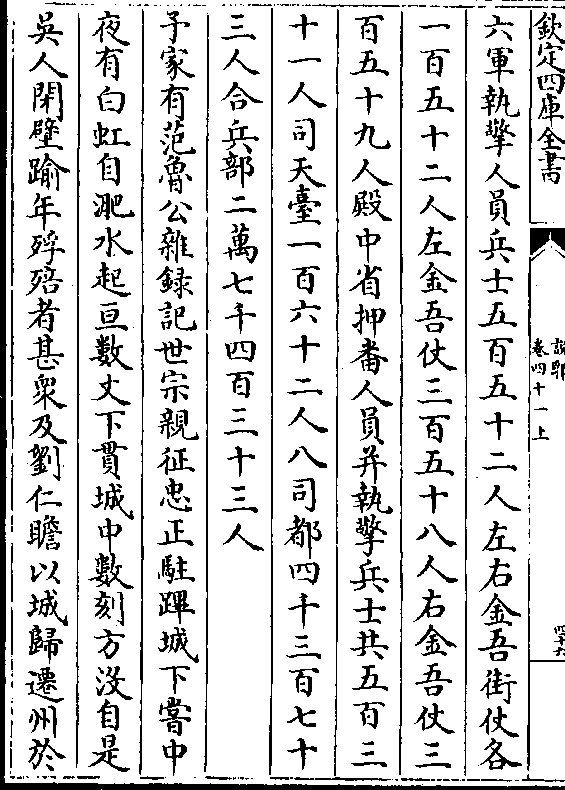 欽定四庫全書
說郛
卷四十一上
六軍執擎人員兵士五百五十二人左右金吾街仗各
一百五十二人左金吾仗三百五十八人右金吾仗三
百五十九人殿中省押番人員并執擎兵士共五百三
十一人司天臺一百六十二人八司都四千三百七十
三人合兵部二萬七千四百三十三人
予家有范魯公雜録記世宗親征忠正駐蹕城下嘗中
夜有白虹自淝水起亘數丈下貫城中數刻方没自是
吳人閉壁踰年殍殕者甚衆及劉仁贍以城歸遷州於